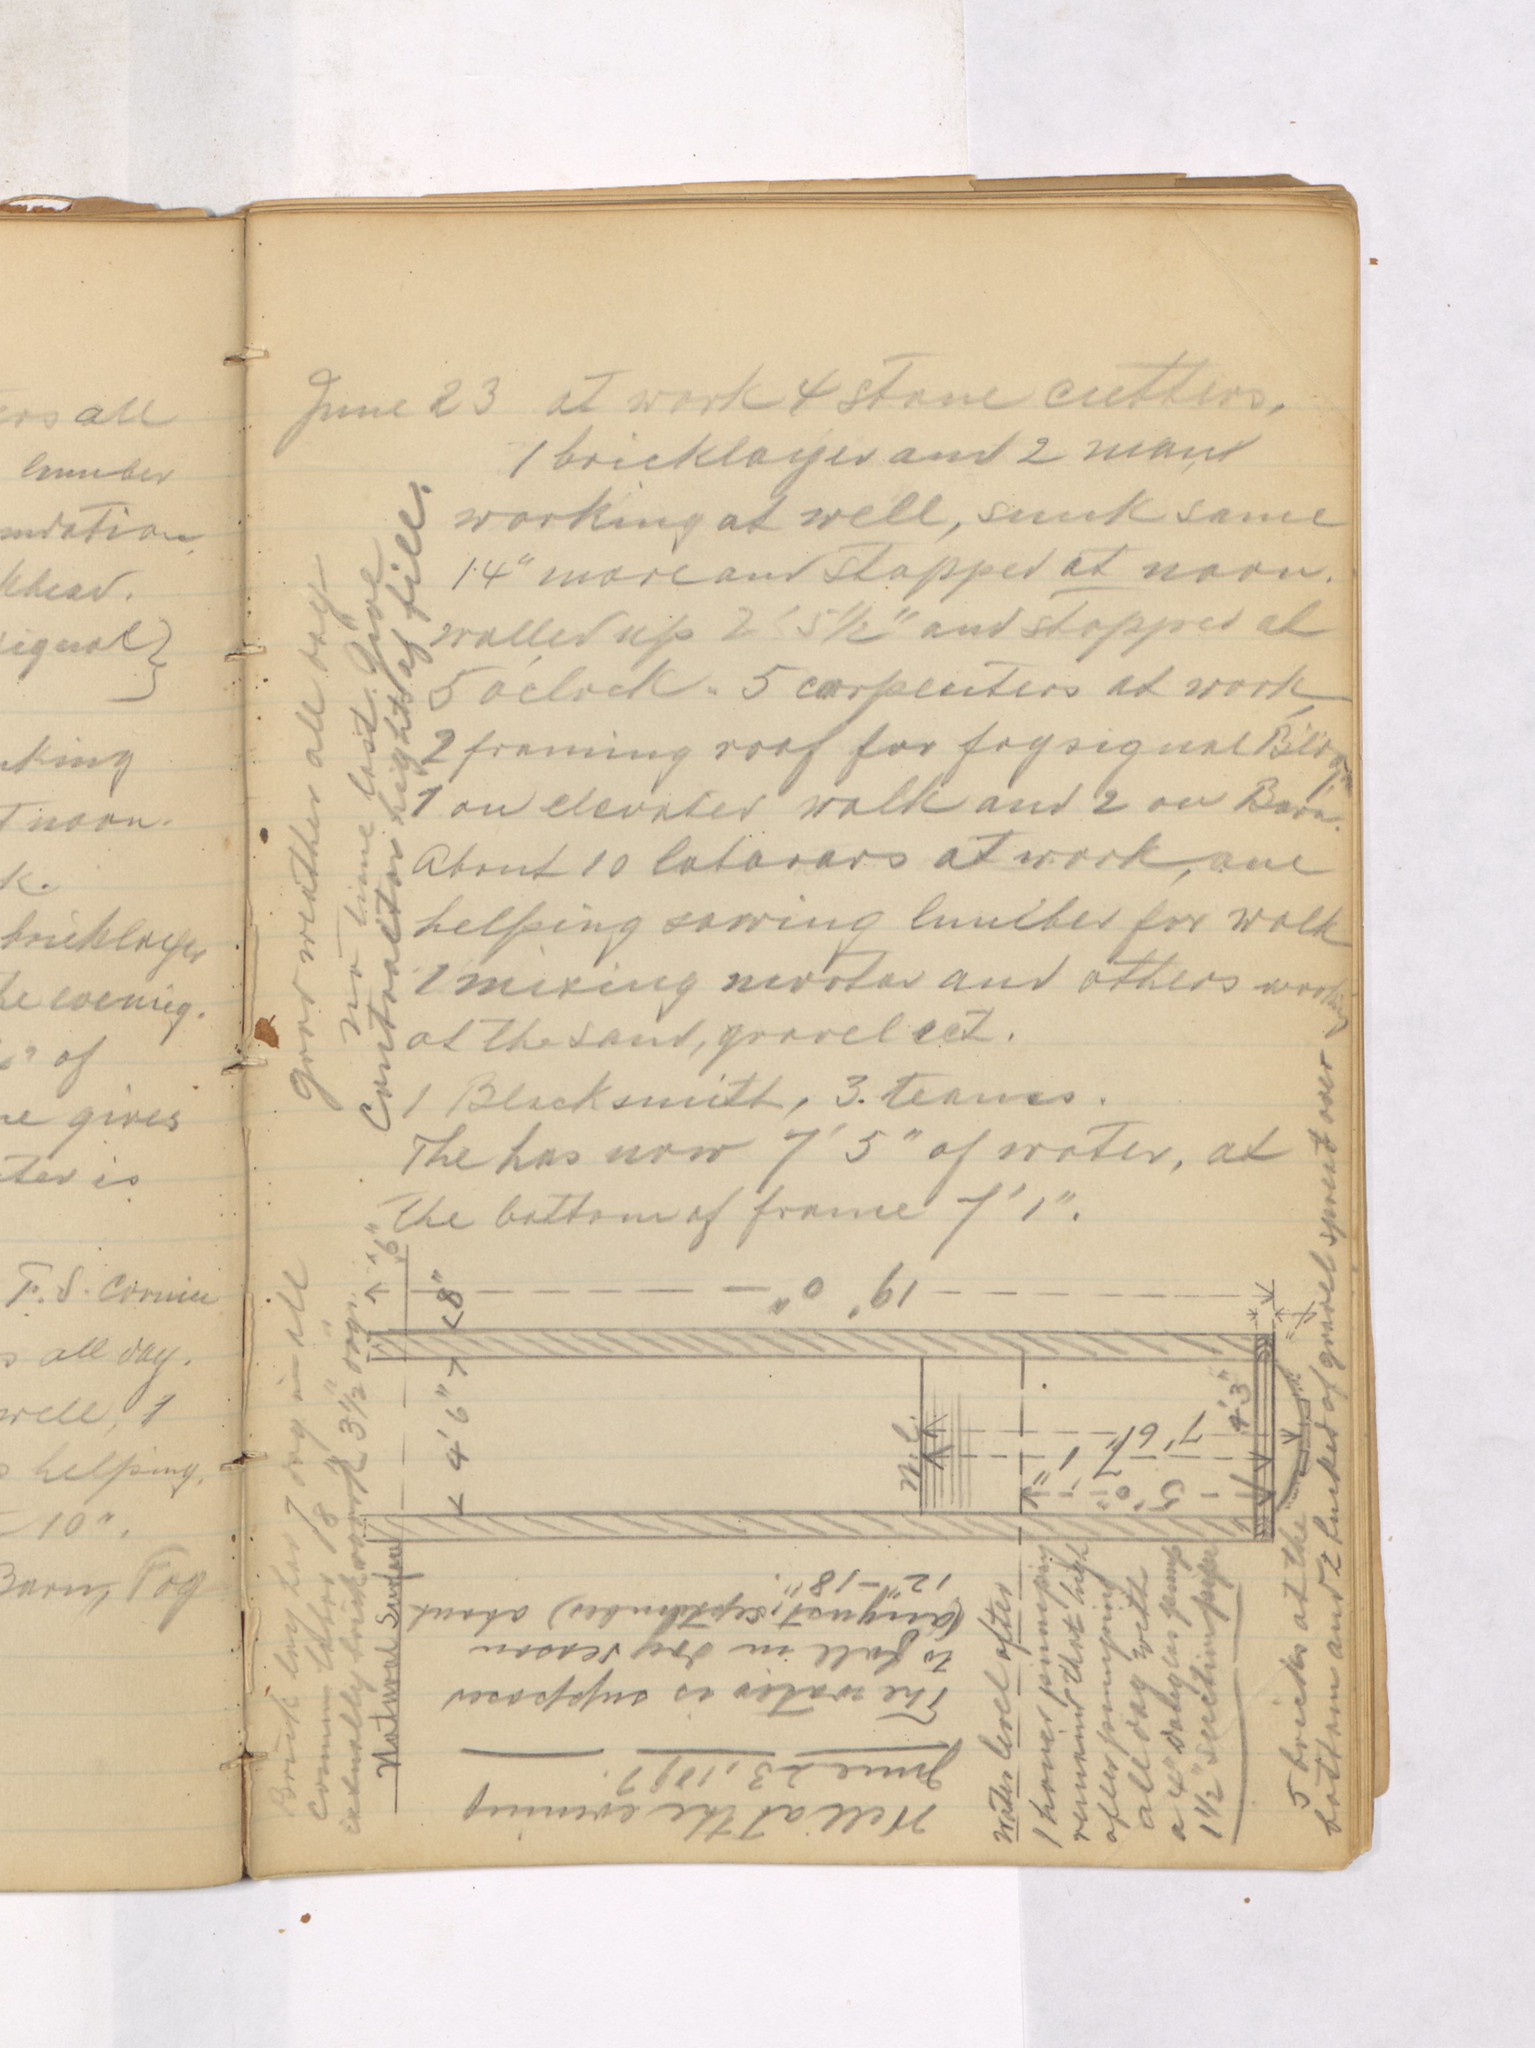 ers all
lumber
undation,
khead.
signal}
king
t noon.
k.
bricklayer
he evening.
" of
ne gives
ter is
F. S. Cornice
s all day.
well, 1
s helping.
- 10".
Barn, Fog
June 23 at work 4 stone cutters,
1 bricklayer and 2 man
working at well, sunk same
14" more and stopped at noon.
walled up 2' 5½" and stopped at
5 oclock. 5 carpenters at work,
2 framing roof for fogsignal Bl'dg
1 on elevated walk and 2 on Barn.
About 10 labarars at work, one
helping sawing lumber for walk
1 mixing mortar and others working
at the sand, gravel ect.
1 Blacksmith, 3 teams.
The has now 7' 5" of water, at
the bottom of frame 7' 1".
good weather all day
no time lost. Give
Contractor hights of fill.
Brick lay has 7 day in all
Common labor 18 "
exactually brickwork 3½ days.
Natural Surface
6"
8"
4' 6"
19' 0"
W. L.
7' 6"
7' 1"
5' 0"
4' 3"
4"
Well at the evening
June 23, 1897.
The water is supposed
to fall in dry season
(august, september) about
12"-18".
Water level after
1 houer pumping
remaind that high
after pumping
all day with
a 4" duglas pump
1½" suction pipe
5 bricks at the
bottom and 2 bucked of gravel spread over